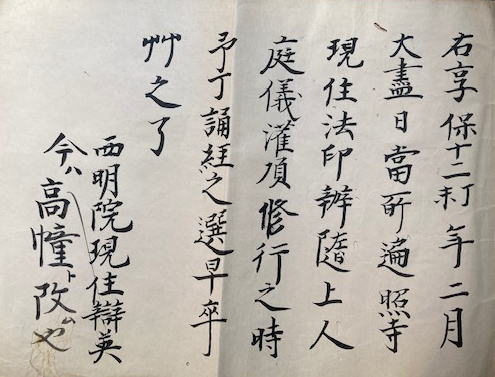 右享保十二丁未年二月
大盡日當所遍照寺
現住法印辨隨上人
庭儀灌頂修行之時
予丁誦経之選早卒
艸之了
西明院現住辯英
今ハ高幢ト改ム也